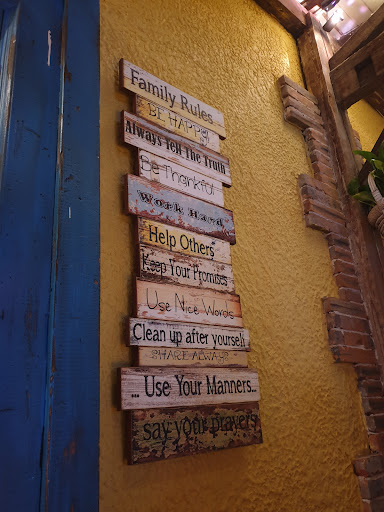 Family Rules
BE HAPPY
Always Tell The Truth
Be Thankful
Work Hard
Help Others
Keep Your Promises
Use Nice Words
Clean up after yourself
SHARE ALWAYS
... Use Your Manners...
say your prayers